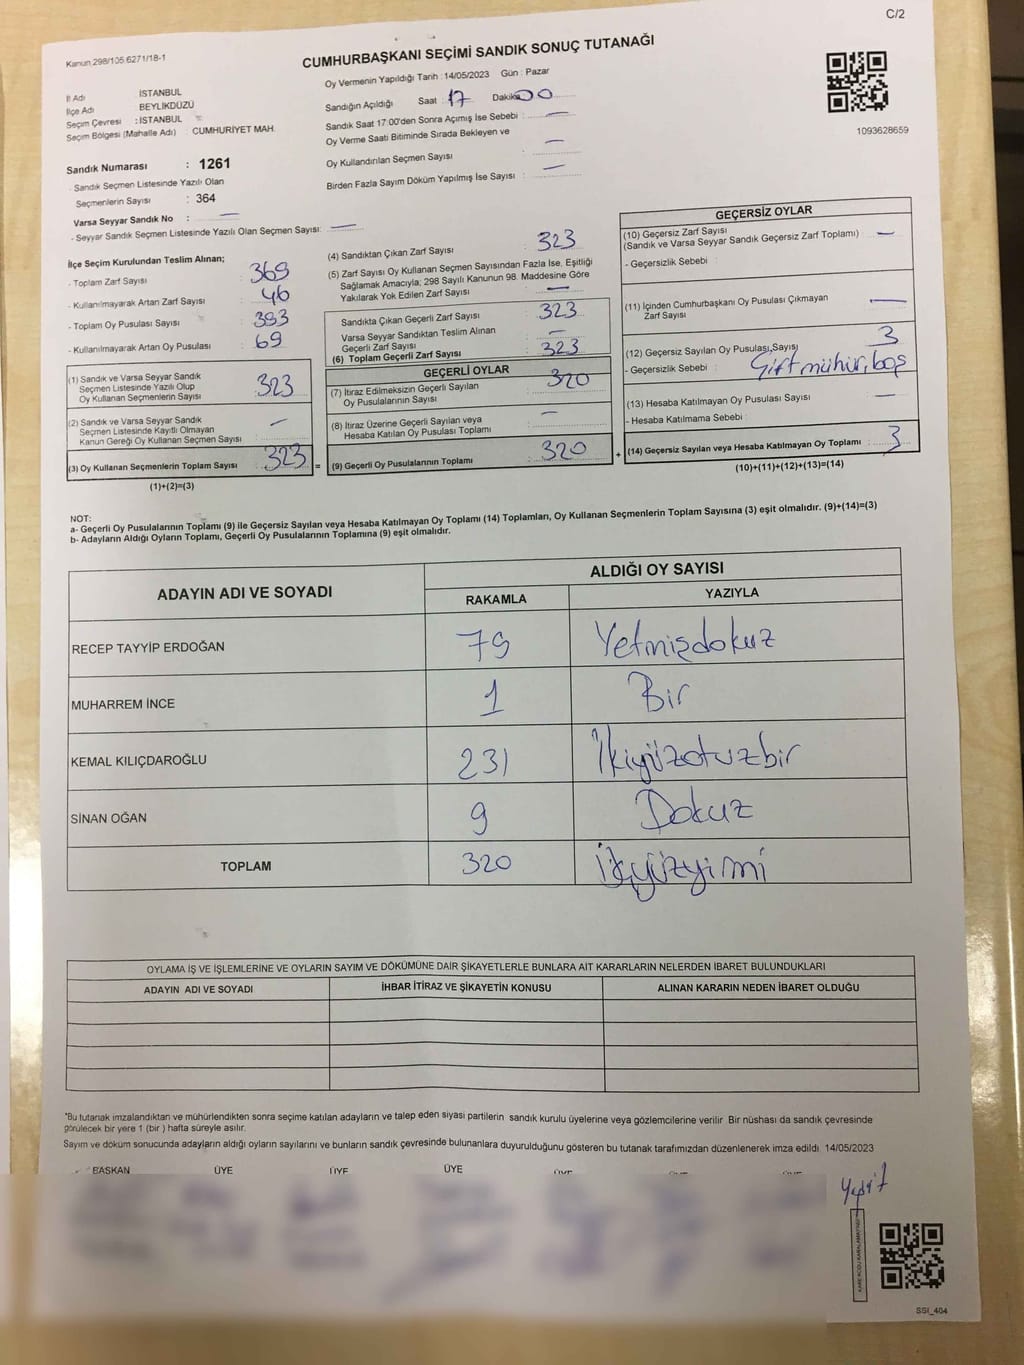 C/2
Kanun 298/105 6271/18-1
CUMHURBAŞKANI SEÇİMİ SANDIK SONUÇ TUTANAĞI
Oy Vermenin Yapıldığı Tarih : 14/05/2023 Gün : Pazar
İl Adı İSTANBUL
İlçe Adı BEYLİKDÜZÜ
Seçim Çevresi : İSTANBUL
Seçim Bölgesi (Mahalle Adı) : CUMHURİYET MAH.
Sandığın Açıldığı Saat 17 Dakika 00
Sandık Saat 17:00'den Sonra Açımış İse Sebebi : —
Oy Verme Saati Bitiminde Sırada Bekleyen ve
Oy Kullandırılan Seçmen Sayısı —
Birden Fazla Sayım Döküm Yapılmış İse Sayısı : —
1093628659
Sandık Numarası : 1261
- Sandık Seçmen Listesinde Yazılı Olan
Seçmenlerin Sayısı : 364
Varsa Seyyar Sandık No : —
- Seyyar Sandık Seçmen Listesinde Yazılı Olan Seçmen Sayısı: —
İlçe Seçim Kurulundan Teslim Alınan;
- Toplam Zarf Sayısı : 369
- Kullanılmayarak Artan Zarf Sayısı : 46
- Toplam Oy Pusulası Sayısı : 393
- Kullanılmayarak Artan Oy Pusulası : 69
(1) Sandık ve Varsa Seyyar Sandık
Seçmen Listesinde Yazılı Olup
Oy Kullanan Seçmenlerin Sayısı : 323
(2) Sandık ve Varsa Seyyar Sandık
Seçmen Listesinde Kayıtlı Olmayan
Kanun Gereği Oy Kullanan Seçmen Sayısı : —
(3) Oy Kullanan Seçmenlerin Toplam Sayısı : 323 =
(1)+(2)=(3)
(4) Sandıktan Çıkan Zarf Sayısı : 323
(5) Zarf Sayısı Oy Kullanan Seçmen Sayısından Fazla İse, Eşitliği
Sağlamak Amacıyla; 298 Sayılı Kanunun 98. Maddesine Göre
Yakılarak Yok Edilen Zarf Sayısı : —
Sandıkta Çıkan Geçerli Zarf Sayısı : 323
Varsa Seyyar Sandıktan Teslim Alınan
Geçerli Zarf Sayısı : —
(6) Toplam Geçerli Zarf Sayısı : 323
GEÇERLİ OYLAR
(7) İtiraz Edilmeksizin Geçerli Sayılan
Oy Pusulalarının Sayısı : 320
(8) İtiraz Üzerine Geçerli Sayılan veya
Hesaba Katılan Oy Pusulası Toplamı : —
(9) Geçerli Oy Pusulalarının Toplamı : 320 +
GEÇERSİZ OYLAR
(10) Geçersiz Zarf Sayısı
(Sandık ve Varsa Seyyar Sandık Geçersiz Zarf Toplamı) —
- Geçersizlik Sebebi :
(11) İçinden Cumhurbaşkanı Oy Pusulası Çıkmayan
Zarf Sayısı : —
(12) Geçersiz Sayılan Oy Pusulası Sayısı 3
- Geçersizlik Sebebi : Çift mühür, boş
(13) Hesaba Katılmayan Oy Pusulası Sayısı : —
- Hesaba Katılmama Sebebi :
(14) Geçersiz Sayılan veya Hesaba Katılmayan Oy Toplamı : 3
(10)+(11)+(12)+(13)=(14)
NOT:
a- Geçerli Oy Pusulalarının Toplamı (9) ile Geçersiz Sayılan veya Hesaba Katılmayan Oy Toplamı (14) Toplamları, Oy Kullanan Seçmenlerin Toplam Sayısına (3) eşit olmalıdır. (9)+(14)=(3)
b- Adayların Aldığı Oyların Toplamı, Geçerli Oy Pusulalarının Toplamına (9) eşit olmalıdır.
ADAYIN ADI VE SOYADI ALDIĞI OY SAYISI
RAKAMLA YAZIYLA
RECEP TAYYİP ERDOĞAN 79 Yetmişdokuz
MUHARREM İNCE 1 Bir
KEMAL KILIÇDAROĞLU 231 İkiyüzotuzbir
SİNAN OĞAN 9 Dokuz
TOPLAM 320
OYLAMA İŞ VE İŞLEMLERİNE VE OYLARIN SAYIM VE DÖKÜMÜNE DAİR ŞİKAYETLERLE BUNLARA AİT KARARLARIN NELERDEN İBARET BULUNDUKLARI
ADAYIN ADI VE SOYADI İHBAR İTİRAZ VE ŞİKAYETİN KONUSU ALINAN KARARIN NEDEN İBARET OLDUĞU
*Bu tutanak imzalandıktan ve mühürlendikten sonra seçime katılan adayların ve talep eden siyasi partilerin sandık kurulu üyelerine veya gözlemcilerine verilir. Bir nüshası da sandık çevresinde
görülecek bir yere 1 (bir ) hafta süreyle asılır.
Sayım ve döküm sonucunda adayların aldığı oyların sayılarını ve bunların sandık çevresinde bulunanlara duyurulduğunu gösteren bu tutanak tarafımızdan düzenlenerek imza edildi. 14/05/2023
BAŞKAN ÜYE ÜYE ÜYE
SSI_404